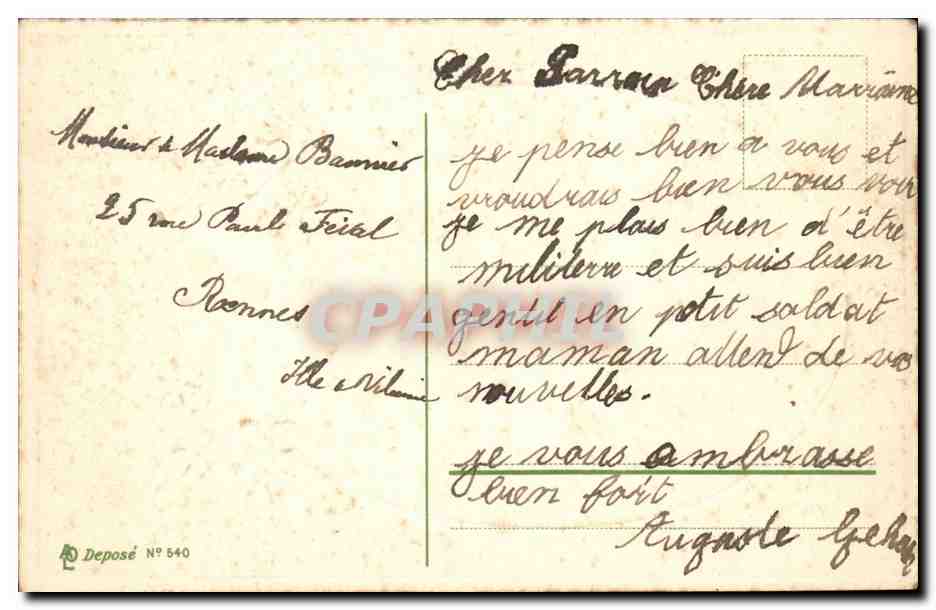 Cher Parrain Chère Marraine
je pense bien a vous et
vroudrais bien vous voir
je me plais bien d'être
militerre et suis bien
gentil en ptit soldat
maman attend de vos
nouvelles.
je vous ambrasse
bien fort
Auguste
Monsieur & Madame
25 rue Paul Féval
Rennes
Ille & Vilaine
CPAPHIL
Deposé Nº 540